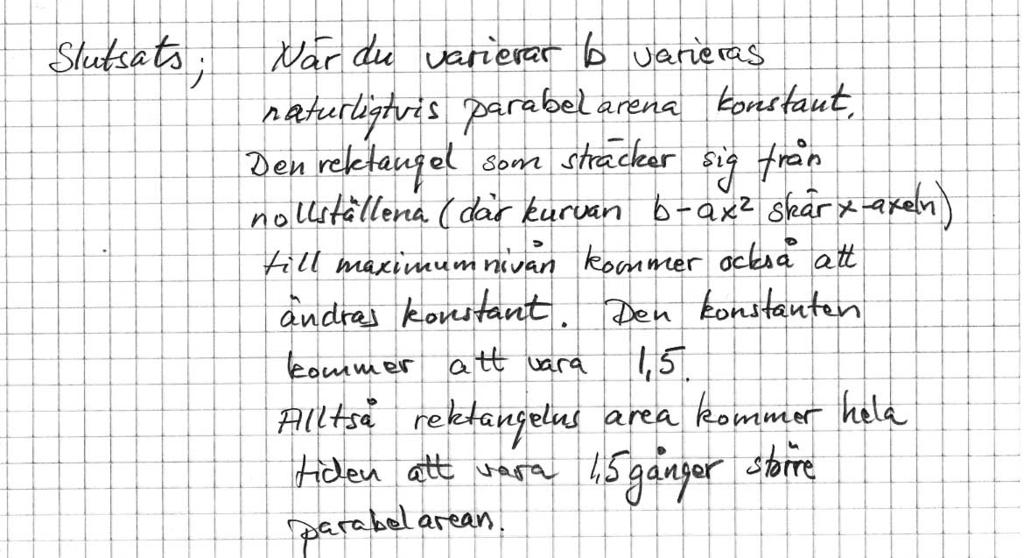 Slutsats; När du varierar b varieras
naturligtvis parabelarena konstant.
Den rektangel som sträcker sig från
nollställena (där kurvan b-ax² skär x-axeln)
till maximumnivån kommer också att
ändras konstant. Den konstanten
kommer att vara 1,5.
Alltså rektangelns area kommer hela
tiden att vara 1,5 gånger större
parabelarean.